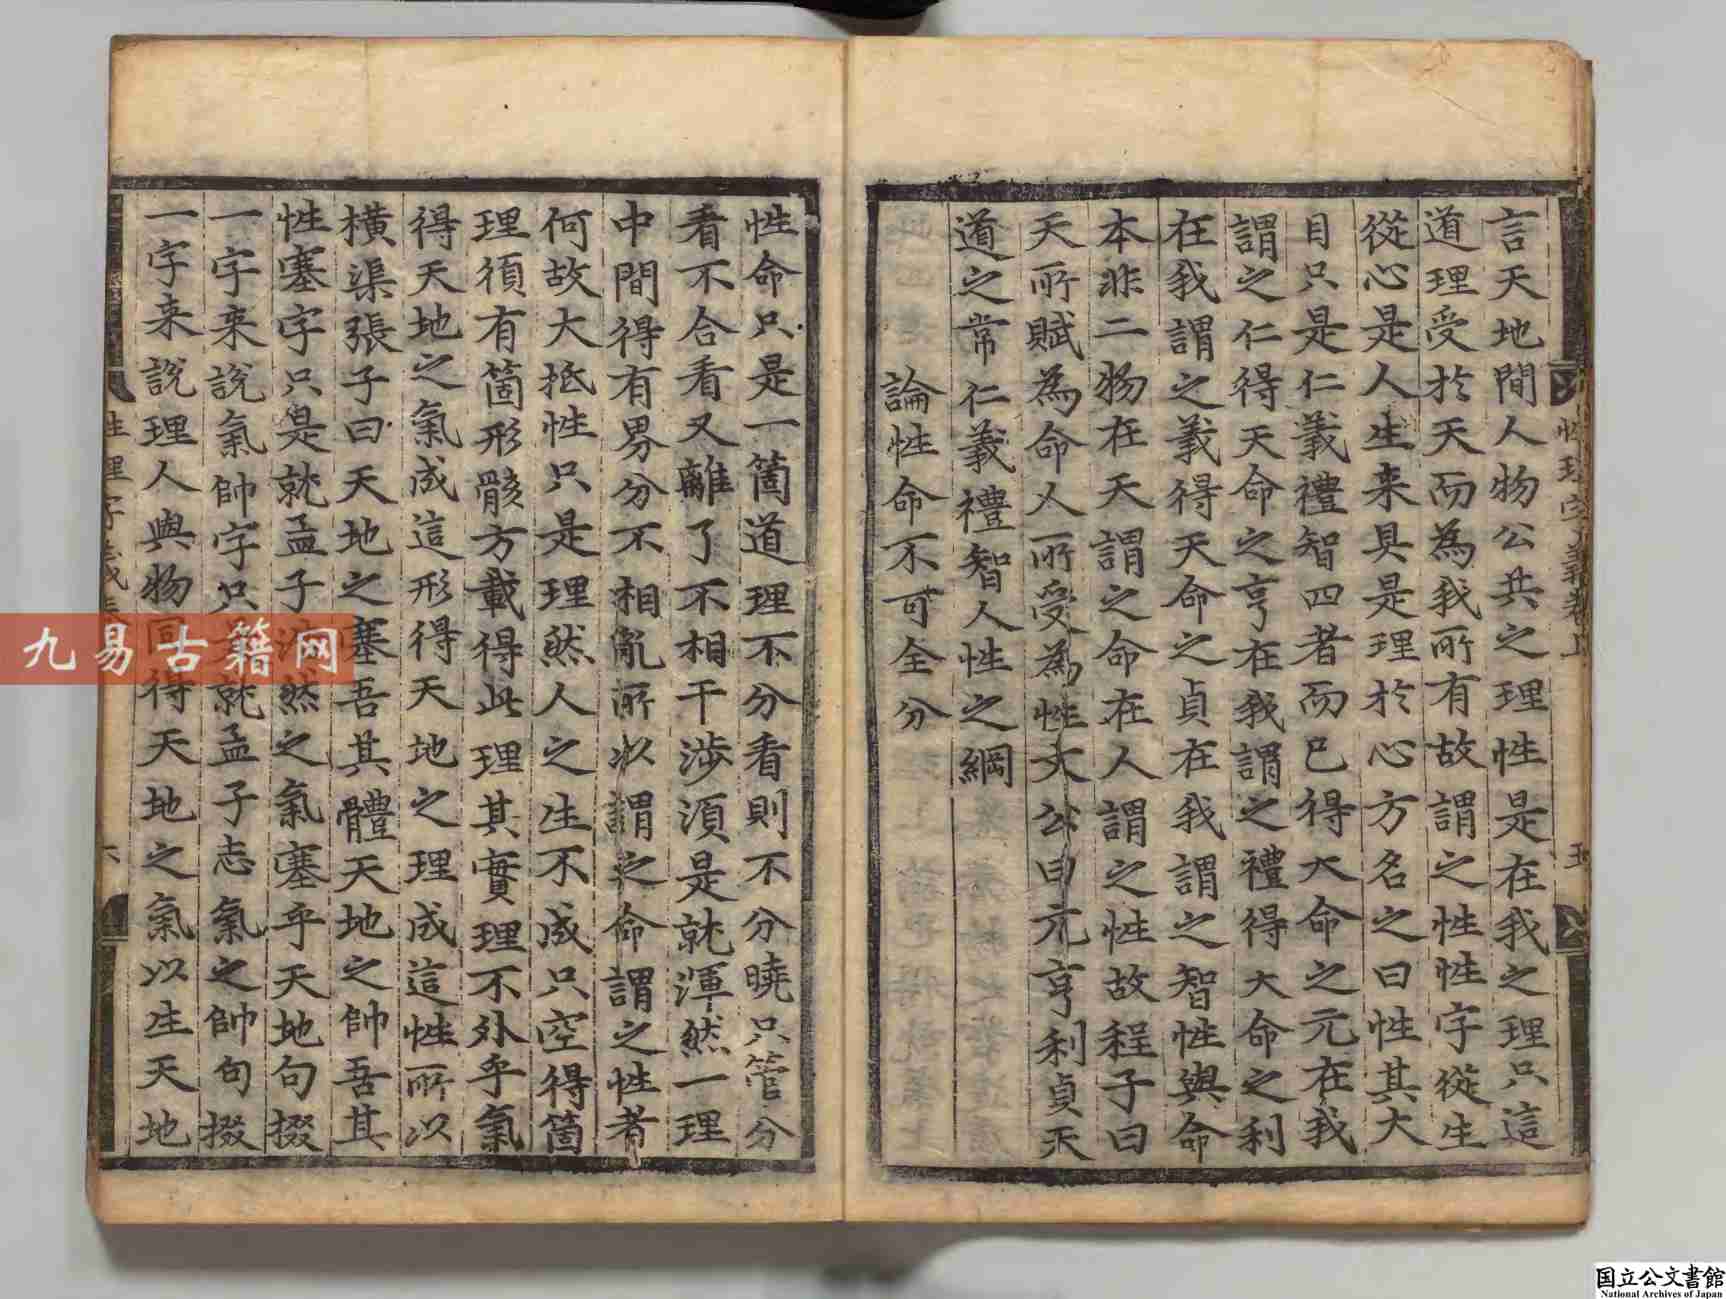 言天地間人物公共之理性是在我之理只這
道理受於天而為我所有故謂之性性字從生
從心是人生来具是理於心方名之曰性其大
目只是仁義禮智四者而已得天命之元在我
謂之仁得天命之亨在我謂之禮得天命之利
在我謂之義得天命之貞在我謂之智性與命
本非二物在天謂之命在人謂之性故程子曰
天所賦為命人所受為性文公曰元亨利貞天
道之常仁義禮智人性之綱
論性命不可全分
性命只是一箇道理不分看則不分曉只管分
看不合看又離了不相干涉湏是就渾然一理
中間得有界分不相亂所以謂之命謂之性者
何故大抵性只是理然人之生不成只空得箇
理湏有箇形骸方載得此理其實理不外乎氣
得天地之氣成這形得天地之理成這性所以
橫渠張子曰天地之塞吾其體天地之帥吾其
性塞字只是就孟子浩然之氣塞乎天地句掇
一字来說氣帥字只是就孟子志氣之帥句掇
一字来說理人與物同得天地之氣以生天地
性理字義卷上
五
六
九易古籍网
国立公文書館
National Archives of Japan